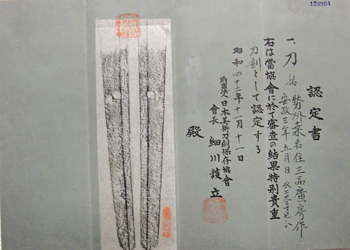 129904
認定書
一、刀 銘 勢州桑名住三品廣房作
安政三年五月日
右は當協會に於て審査の結果特別貴重
刀剣として認定する
昭和四十二年十一月十一日
財團法人日本美術刀剣保存協會
會長 細川護立
殿